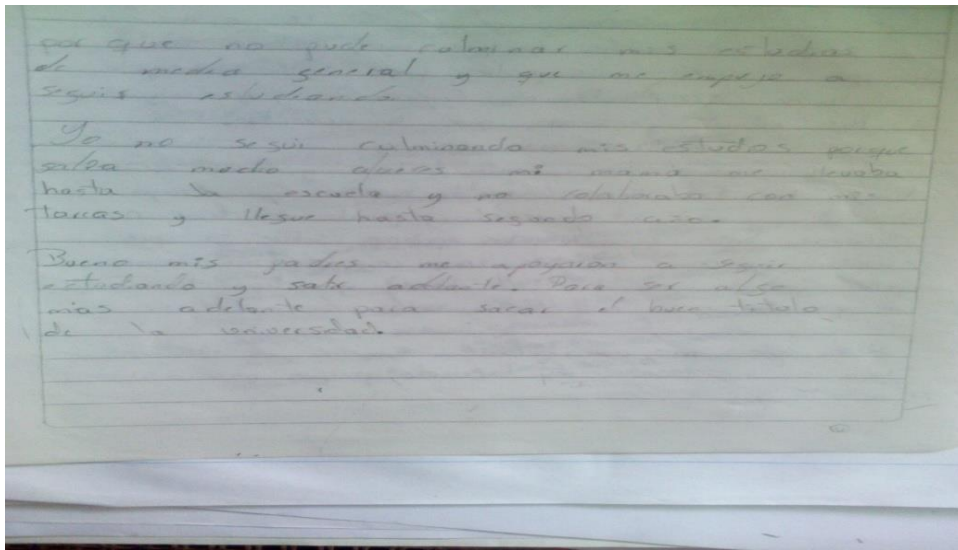 por que no pude culminar mis estudios
de media general y que me empujo a
seguir estudiando
Yo no segui culminando mis estudios porque
salia mucho mi mama me llevaba
hasta la escuela y no colaboraba con mis
tareas y llegue hasta segundo año.
Bueno mis padres me apoyaron a seguir
estudiando y salir adelante. Para ser algo
mas adelante para sacar el buen titulo
de la universidad.